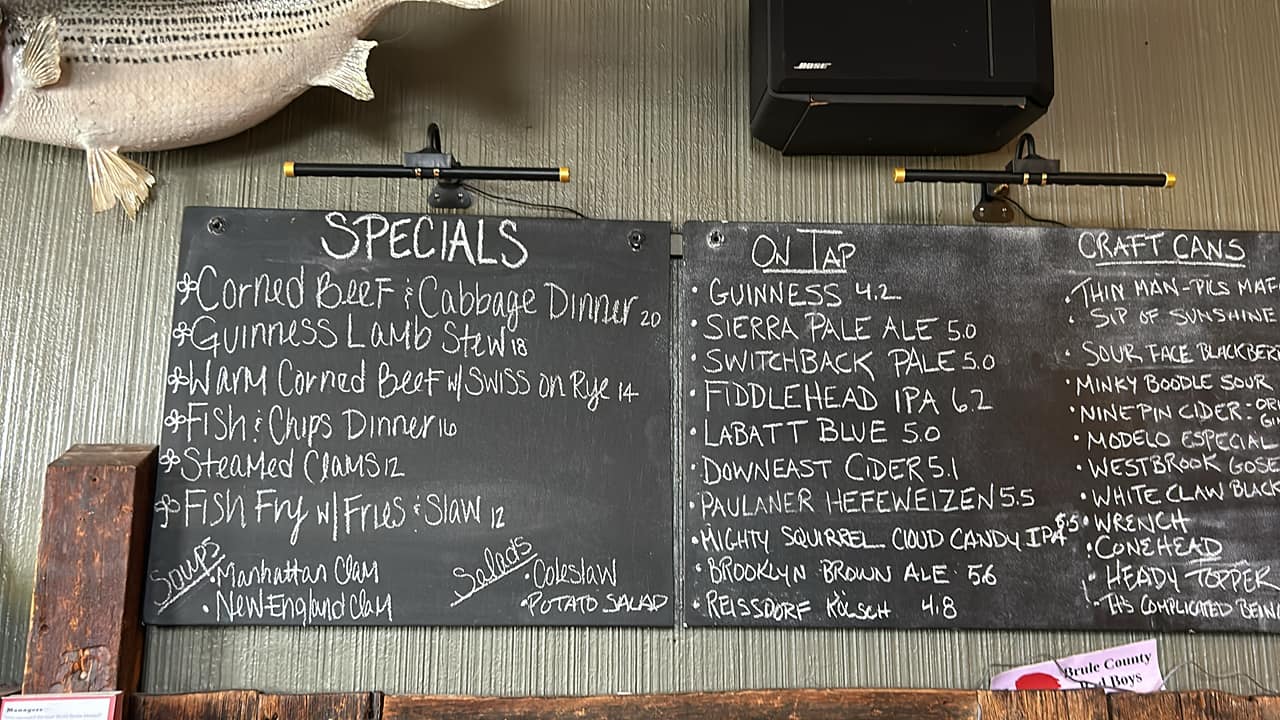 BOSE
SPECIALS
Corned Beef & Cabbage Dinner 20
Guinness Lamb Stew 18
Warm Corned Beef w/ Swiss on Rye 14
Fish & Chips Dinner 16
Steamed Clams 12
Fish Fry w/ Fries & Slaw 12
Soups
• Manhattan Clam
• New England Clam
Salads
• Coleslaw
• Potato Salad
ON TAP
• GUINNESS 4.2
• SIERRA PALE ALE 5.0
• SWITCHBACK PALE 5.0
• FIDDLEHEAD IPA 6.2
• LABATT BLUE 5.0
• DOWNEAST CIDER 5.1
• PAULANER HEFEWEIZEN 5.5
• MIGHTY SQUIRREL CLOUD CANDY IPA 5.5
• BROOKLYN BROWN ALE 5.6
• REISSDORF KÖLSCH 4.8
CRAFT CANS
• THIN MAN-PILS MAF
• SIP OF SUNSHINE
• SOUR FACE BLACKBER
• MINKY BOODLE SOUR
• NINE PIN CIDER - OR
GI
• MODELO ESPECIAL
• WESTBROOK GOSE
• WHITE CLAW BLACK
• WRENCH
• CONEHEAD
• HEADY TOPPER
• IT'S COMPLICATED BEIN
Brule County
Boys
Managers